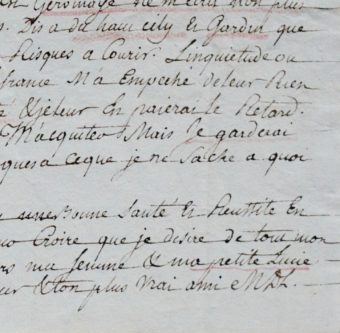 en Germinage ne m'ecris non plus
Dis a da ham city et Gardin que
Risques a Courir. Linquietude ou
france M'a Empeche de leur Rien
& je leur En paierai le Retard.
M'acquiter Mais je garderai
ques a ceque je ne Sache a quoi
une bonne Santé Et Reussite En
Croire que je desire de tout mon
ma femme & ma petite Lucie
& ton plus Vrai ami